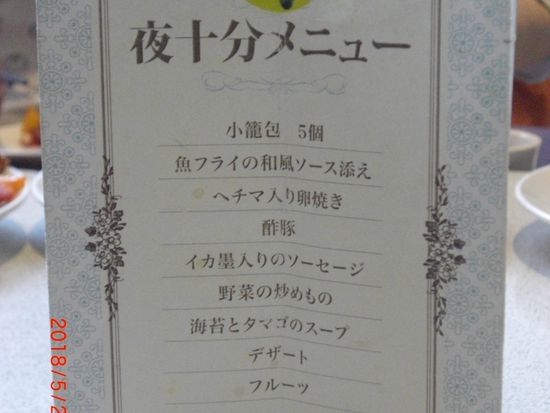 夜十分メニュー
小籠包 5個
魚フライの和風ソース添え
ヘチマ入り卵焼き
酢豚
イカ墨入りのソーセージ
野菜の炒めもの
海苔とタマゴのスープ
デザート
フルーツ
2018/5/2